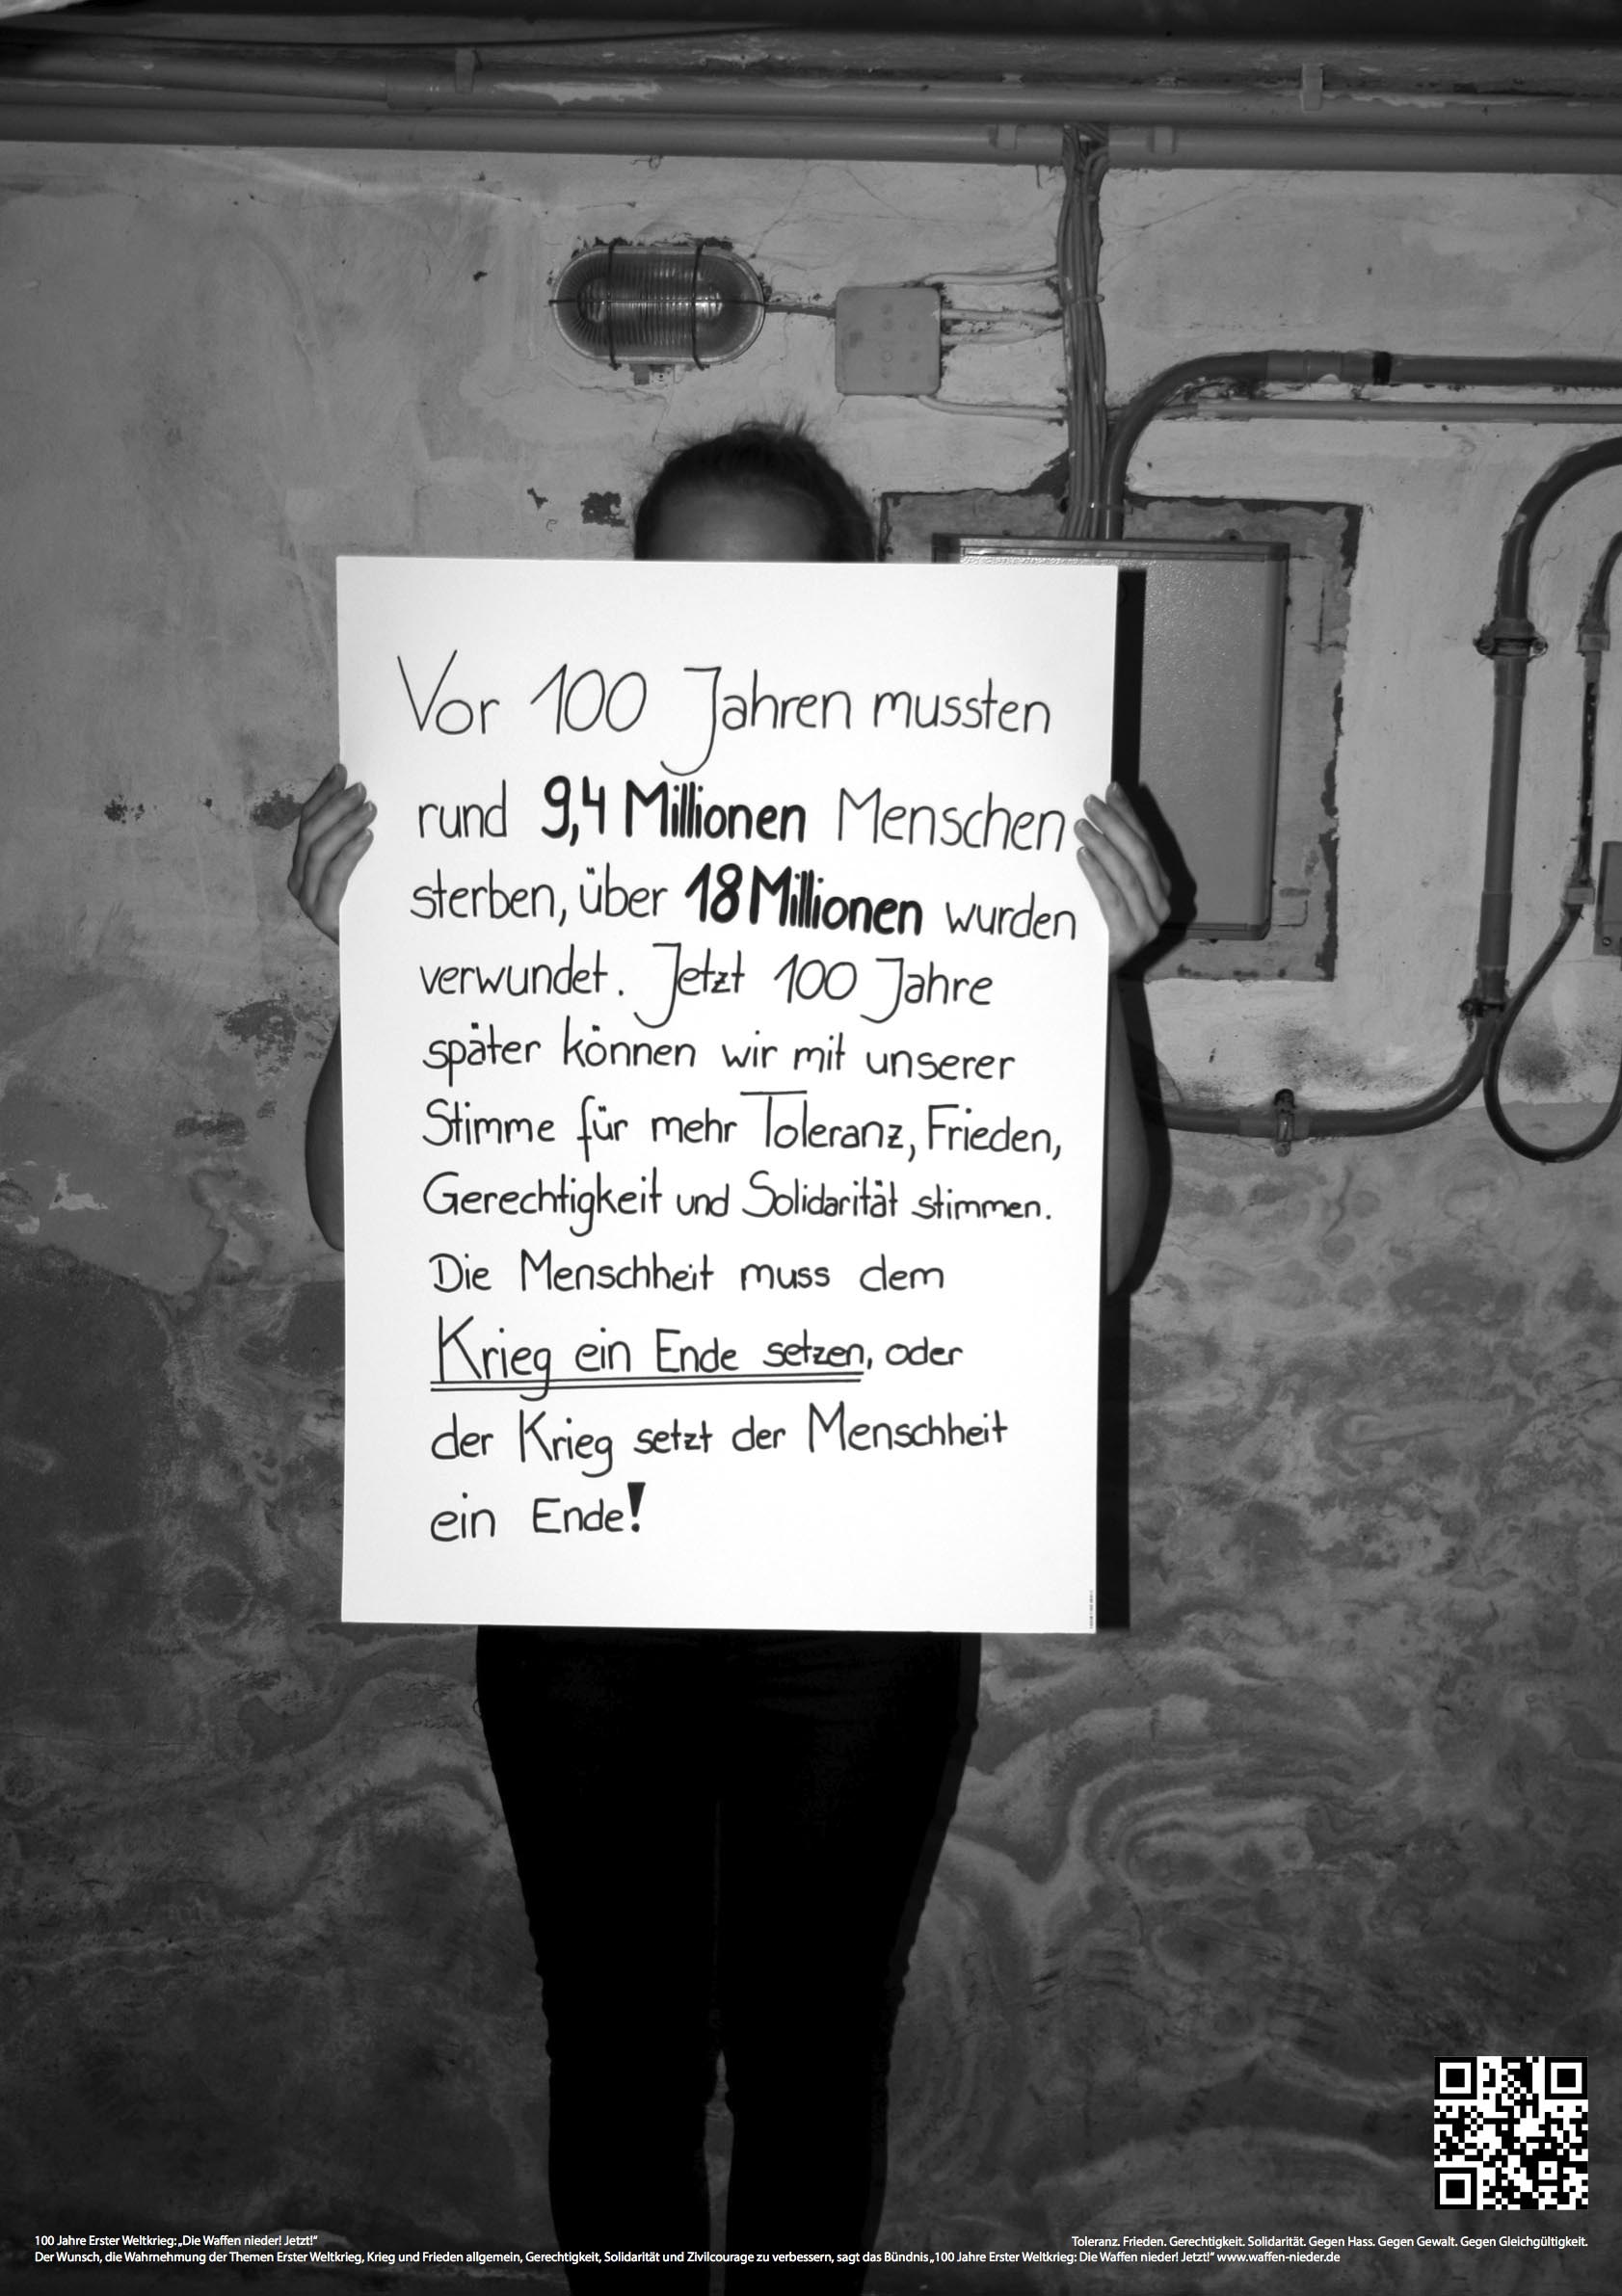 Vor 100 Jahren mussten
rund 9,4 Millionen Menschen
sterben, über 18 Millionen wurden
verwundet. Jetzt 100 Jahre
später können wir mit unserer
Stimme für mehr Toleranz, Frieden,
Gerechtigkeit und Solidarität stimmen.
Die Menschheit muss dem
Krieg ein Ende setzen, oder
der Krieg setzt der Menschheit
ein Ende!
100 Jahre Erster Weltkrieg: „Die Waffen nieder! Jetzt!“
Toleranz. Frieden. Gerechtigkeit. Solidarität. Gegen Hass. Gegen Gewalt. Gegen Gleichgültigkeit.
Der Wunsch, die Wahrnehmung der Themen Erster Weltkrieg, Krieg und Frieden allgemein, Gerechtigkeit, Solidarität und Zivilcourage zu verbessern, sagt das Bündnis „100 Jahre Erster Weltkrieg: Die Waffen nieder! Jetzt!“ www.waffen-nieder.de